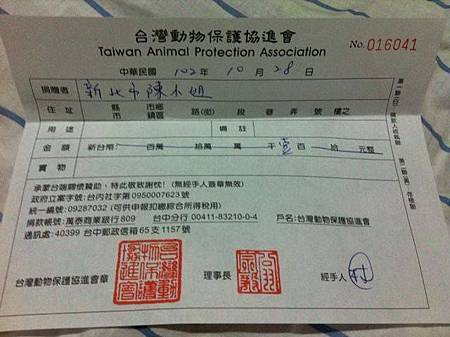 台灣動物保護協進會
Taiwan Animal Protection Association
No. 016041
中華民國 102 年 10 月 28 日
捐贈者 新北市陳小姐
住址 縣市 市鄉鎮區 路(街) 段 巷 弄 號 樓之
用途 備註
金額 新台幣: 百萬 拾萬 萬 千 壹 百 拾 元整
實物
承蒙台端關懷贊助，特此敬致謝忱! (無經手人簽章無效)
政府立案字號: 台內社字第0950007623號
統一編號: 09287032 (可供申報扣繳綜合所得稅用)
捐款帳號: 萬泰商業銀行809 台中分行 00411-83210-0-4 戶名: 台灣動物保護協進會
通訊處: 40399 台中郵政信箱65支1157號
台灣動物保護協進會章 理事長 經手人